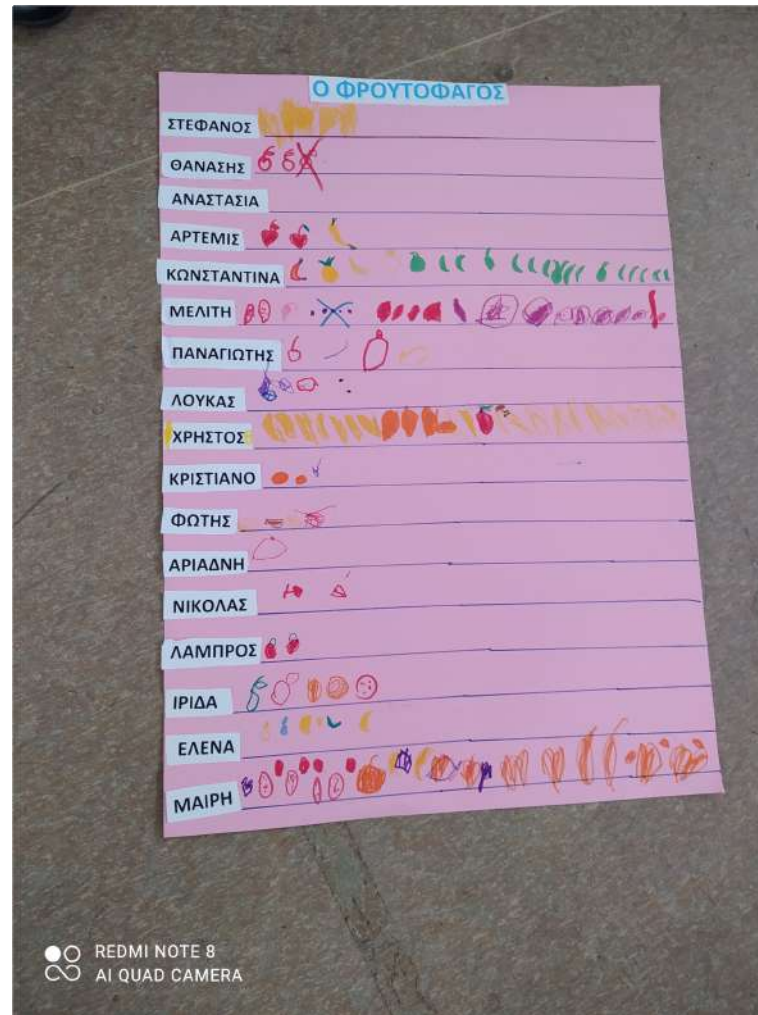 Ο ΦΡΟΥΤΟΦΑΓΟΣ
ΣΤΕΦΑΝΟΣ
ΘΑΝΑΣΗΣ
ΑΝΑΣΤΑΣΙΑ
ΑΡΤΕΜΙΣ
ΚΩΝΣΤΑΝΤΙΝΑ
ΜΕΛΙΤΗ
ΠΑΝΑΓΙΩΤΗΣ
ΛΟΥΚΑΣ
ΧΡΗΣΤΟΣ
ΚΡΙΣΤΙΑΝΟ
ΦΩΤΗΣ
ΑΡΙΑΔΝΗ
ΝΙΚΟΛΑΣ
ΛΑΜΠΡΟΣ
ΙΡΙΔΑ
ΕΛΕΝΑ
ΜΑΙΡΗ
REDMI NOTE 8
AI QUAD CAMERA